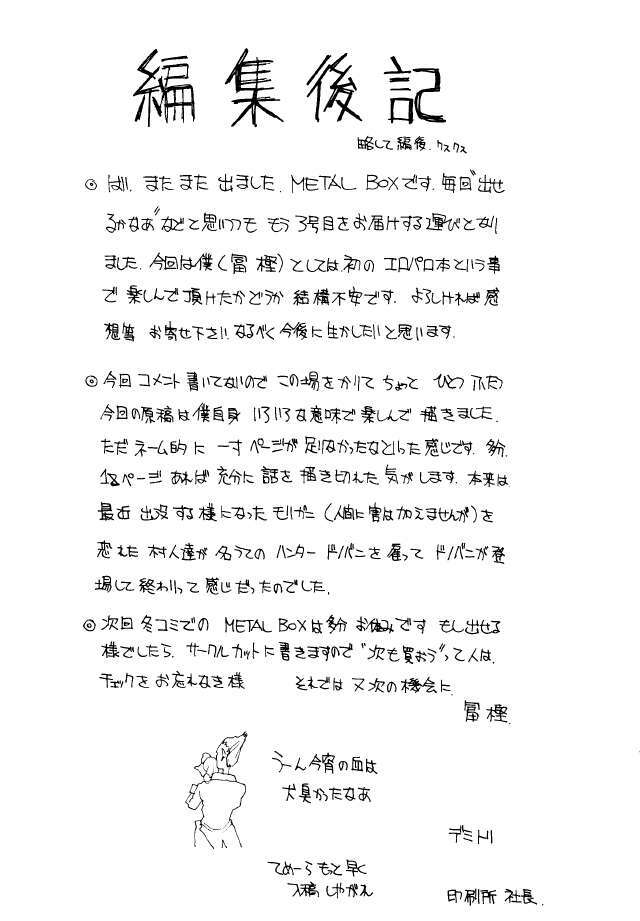 編集後記
略して編後.クスクス
◎ はい、またまた出ました、METAL BOXです。毎回"出せ
るかなあ"などと思いつつも もう3号目をお届けする運びとなり
ました。今回は僕(冨樫)としては初の エロパロ本という事
で楽しんで頂けたかどうか 結構不安です。よろしければ感
想等 お寄せ下さい。なるべく今後に生かしたいと思います。
◎ 今回コメント書いてないので この場をかりて ちょっと ひとつ ふたつ
今回の原稿は僕自身 いろいろな意味で楽しんで 描きました。
ただネーム的に 一寸 ページが足りなかったなといった感じです。多分、
12ページ あれば 充分に話を描き切れた気がします。本来は
最近 出没する様になった モリガン(人間に害は加えませんが)を
恐れた 村人達が 名うての ハンター ドノバンを雇って ドノバンが登
場して終わりって感じだったのでした。
◎ 次回 冬コミでの METAL BOXは多分 お休みです もし出せる
様でしたら、サークルカットに書きますので"次も買おう"って人は、
チェックをお忘れなき様 それでは 又次の機会に
冨樫.
うーん今宵の血は
犬臭かったなあ
デミトリ
てめーら もっと早く
入稿しやがれ
印刷所 社長.